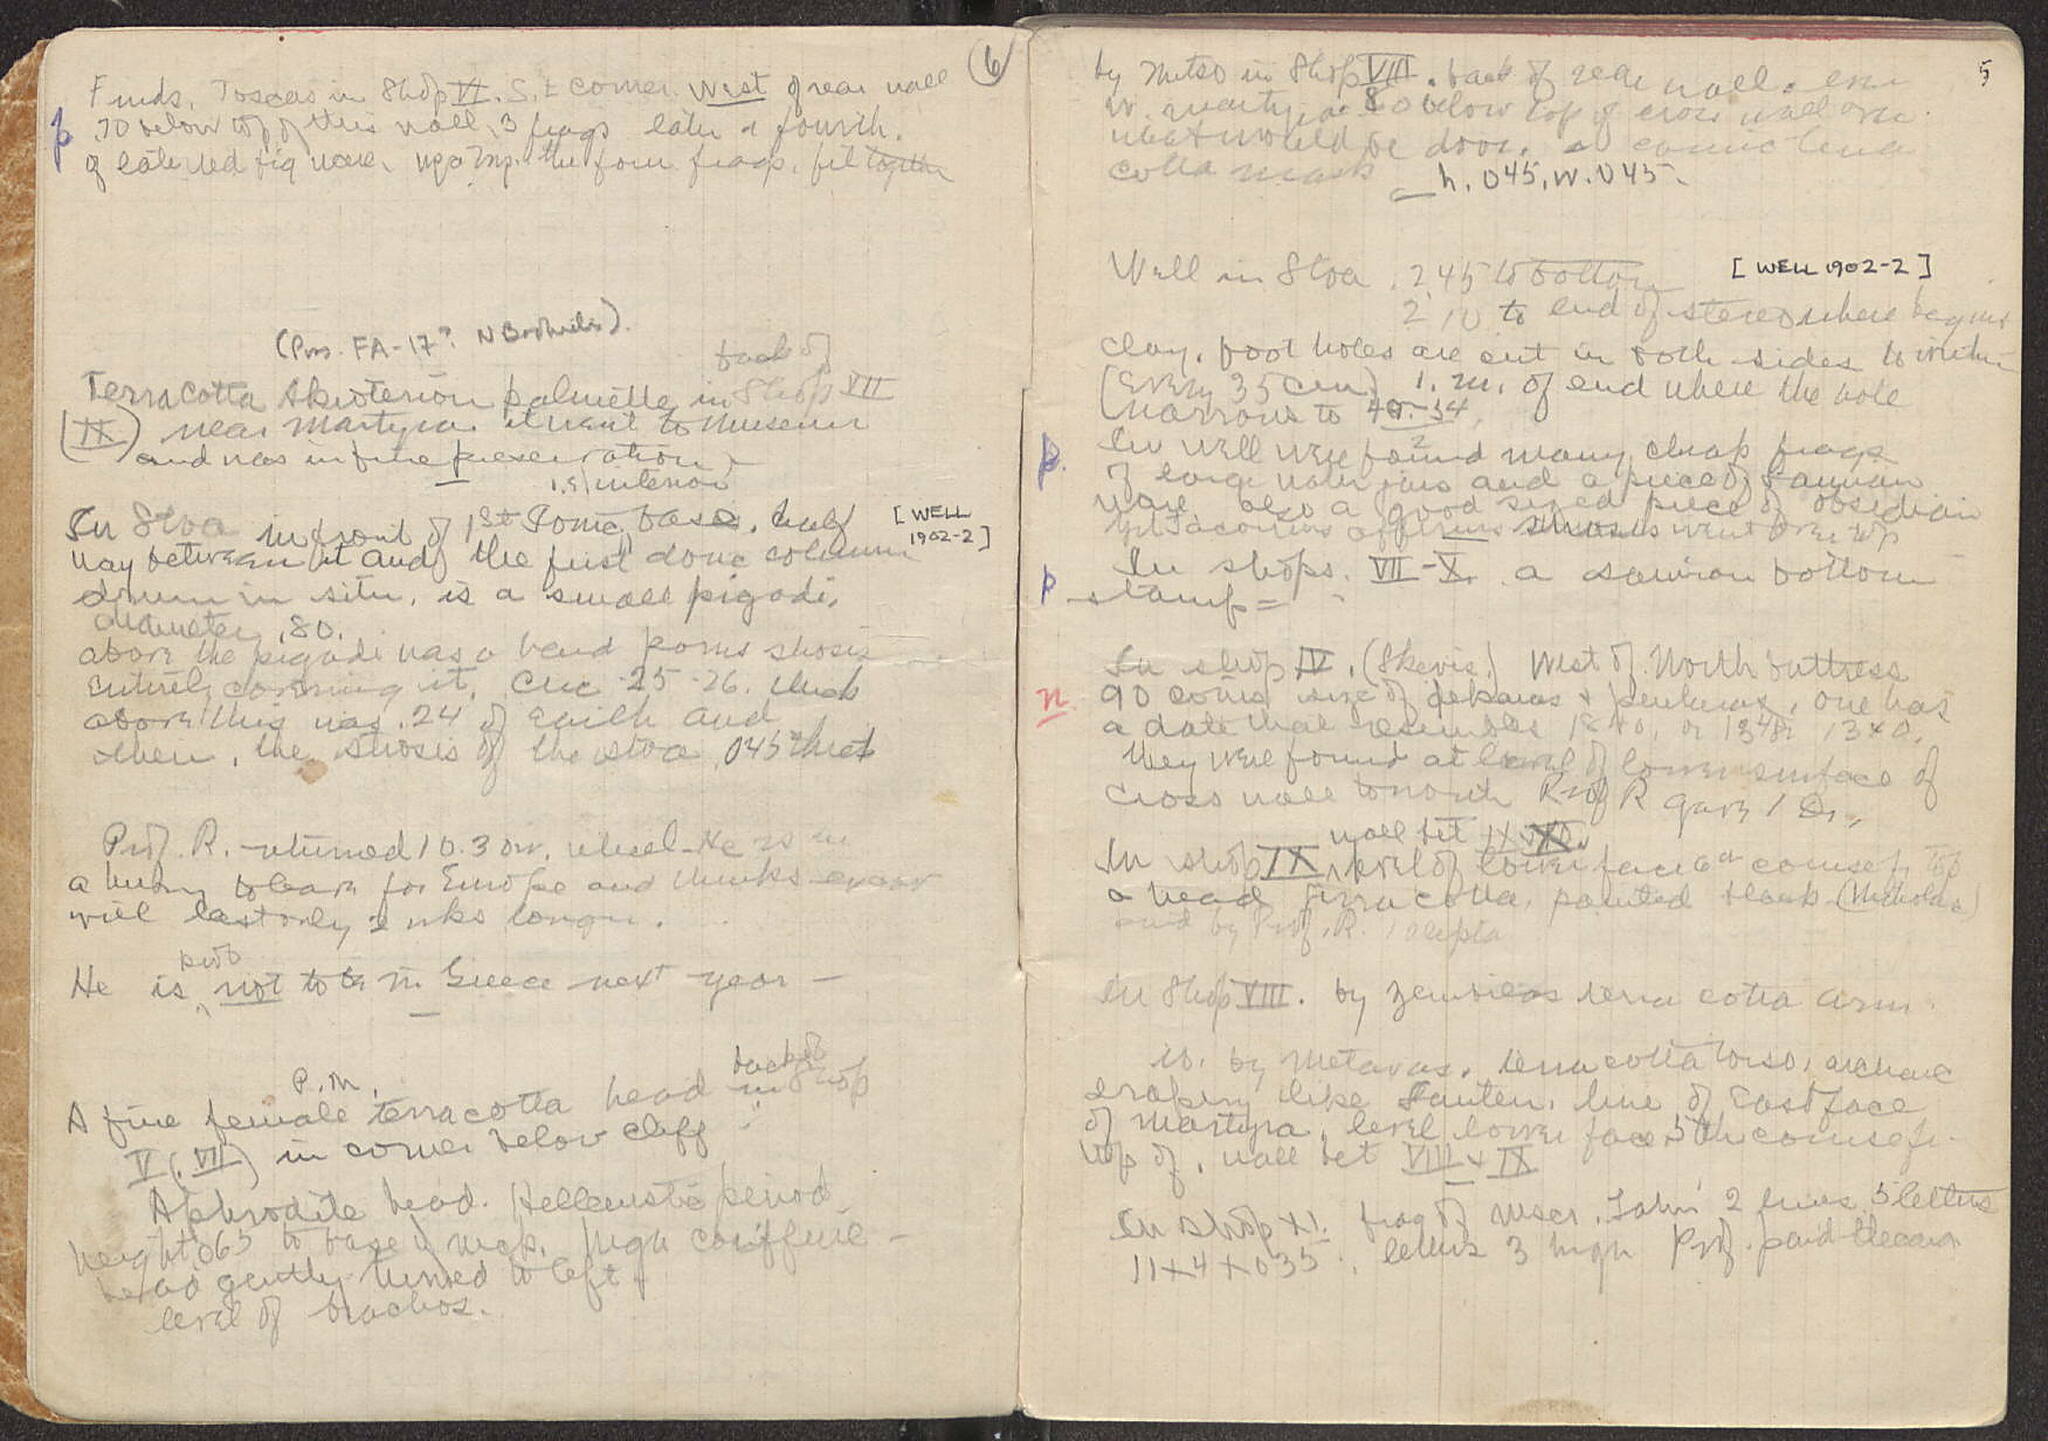 6
Finds. Toscas in Shop VI. S.E corner. West of rear wall
p .70 below top of this wall, 3 frags later a fourth.
of late red fig ware. the four frags. fit together
(Poss. FA-17? N Bookidis).
back of
Terracotta akroterion palmette in Shop VII
(IX) near martyra. it went to museum
and was in fine preservation
i.e. interior
In Stoa in front of 1st Ionic base, half [WELL
way between it and the first doric column 1902-2]
drum in situ, is a small pigadi,
diameter .80.
above the pigadi was a hard poros strosis
entirely covering it, circ .25-.26. thick
above this was .24 of earth and
then, the strosis of the stoa .045 thick
Prof. R. returned 10.3 He is in
a hurry to leave for Europe and thinks excav
will last only 2 wks longer.
prob
He is not to be in Greece next year —
P.M. back of
A fine female terracotta head in Shop
V (VII) in corner below cliff
Aphrodite head. Hellenistic period
height .065 to base of neck. high coiffure —
head gently turned to left.
level of brachos.
5
by Mitso in Shop VIII. back of rear wall.
w. martyra .80 below top of cross wall over
what would be door. a comic terra
cotta mask h. .045, w. .045.
Well in Stoa. 2.45 to bottom [WELL 1902-2]
2.10 to end of stereo where begins
clay. foot holes are cut in both sides to within
(every 35 cm) 1. m. of end where the hole
narrows to 40-34
p. In well were found many cheap frags
of large water jars and a piece of Samian
ware also a good sized piece of obsidian
strosis went over top
In shops. VII-X. a samian bottom
p stamp =
In shop IV. (Skevis.) West of North buttress
n. 90 coins size of dekaras & pentaras, one has
a date that resembles
they were found at level of lower surface of
cross wall to north Prof R gave 1 Dr.
wall bet IX & X
In shop IX, level of lower face 6th course fr top
a head terracotta, painted black (Nicholas)
and by Prof. R. 1 dr
In Shop VIII. by terra cotta arm.
ib. by Metaxas. terracotta torso, archaic
drapery like line of East face
of martyra, level lower face 5th course fr.
top of, wall bet VIII & IX
In Shop XI. frag of inscr. 2 lines 5 letters
11 x 4 x 035. letters 3 high Prof. paid